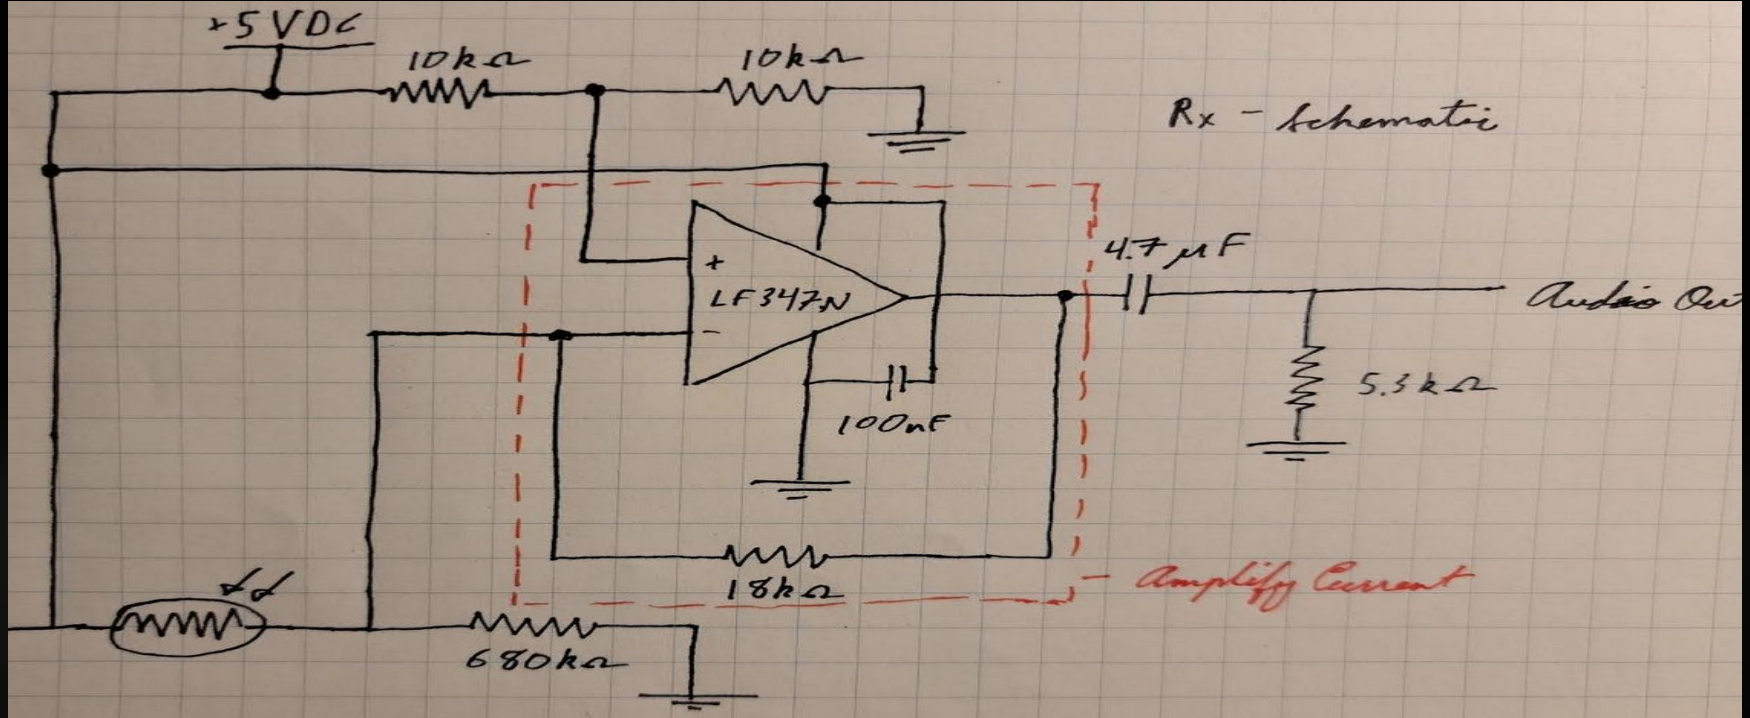 +5VDC
10kΩ
10kΩ
Rx - Schematic
+
LF347N
-
4.7 µF
Audio Ou
5.3kΩ
100nF
18kΩ
- Amplify Current
680kΩ